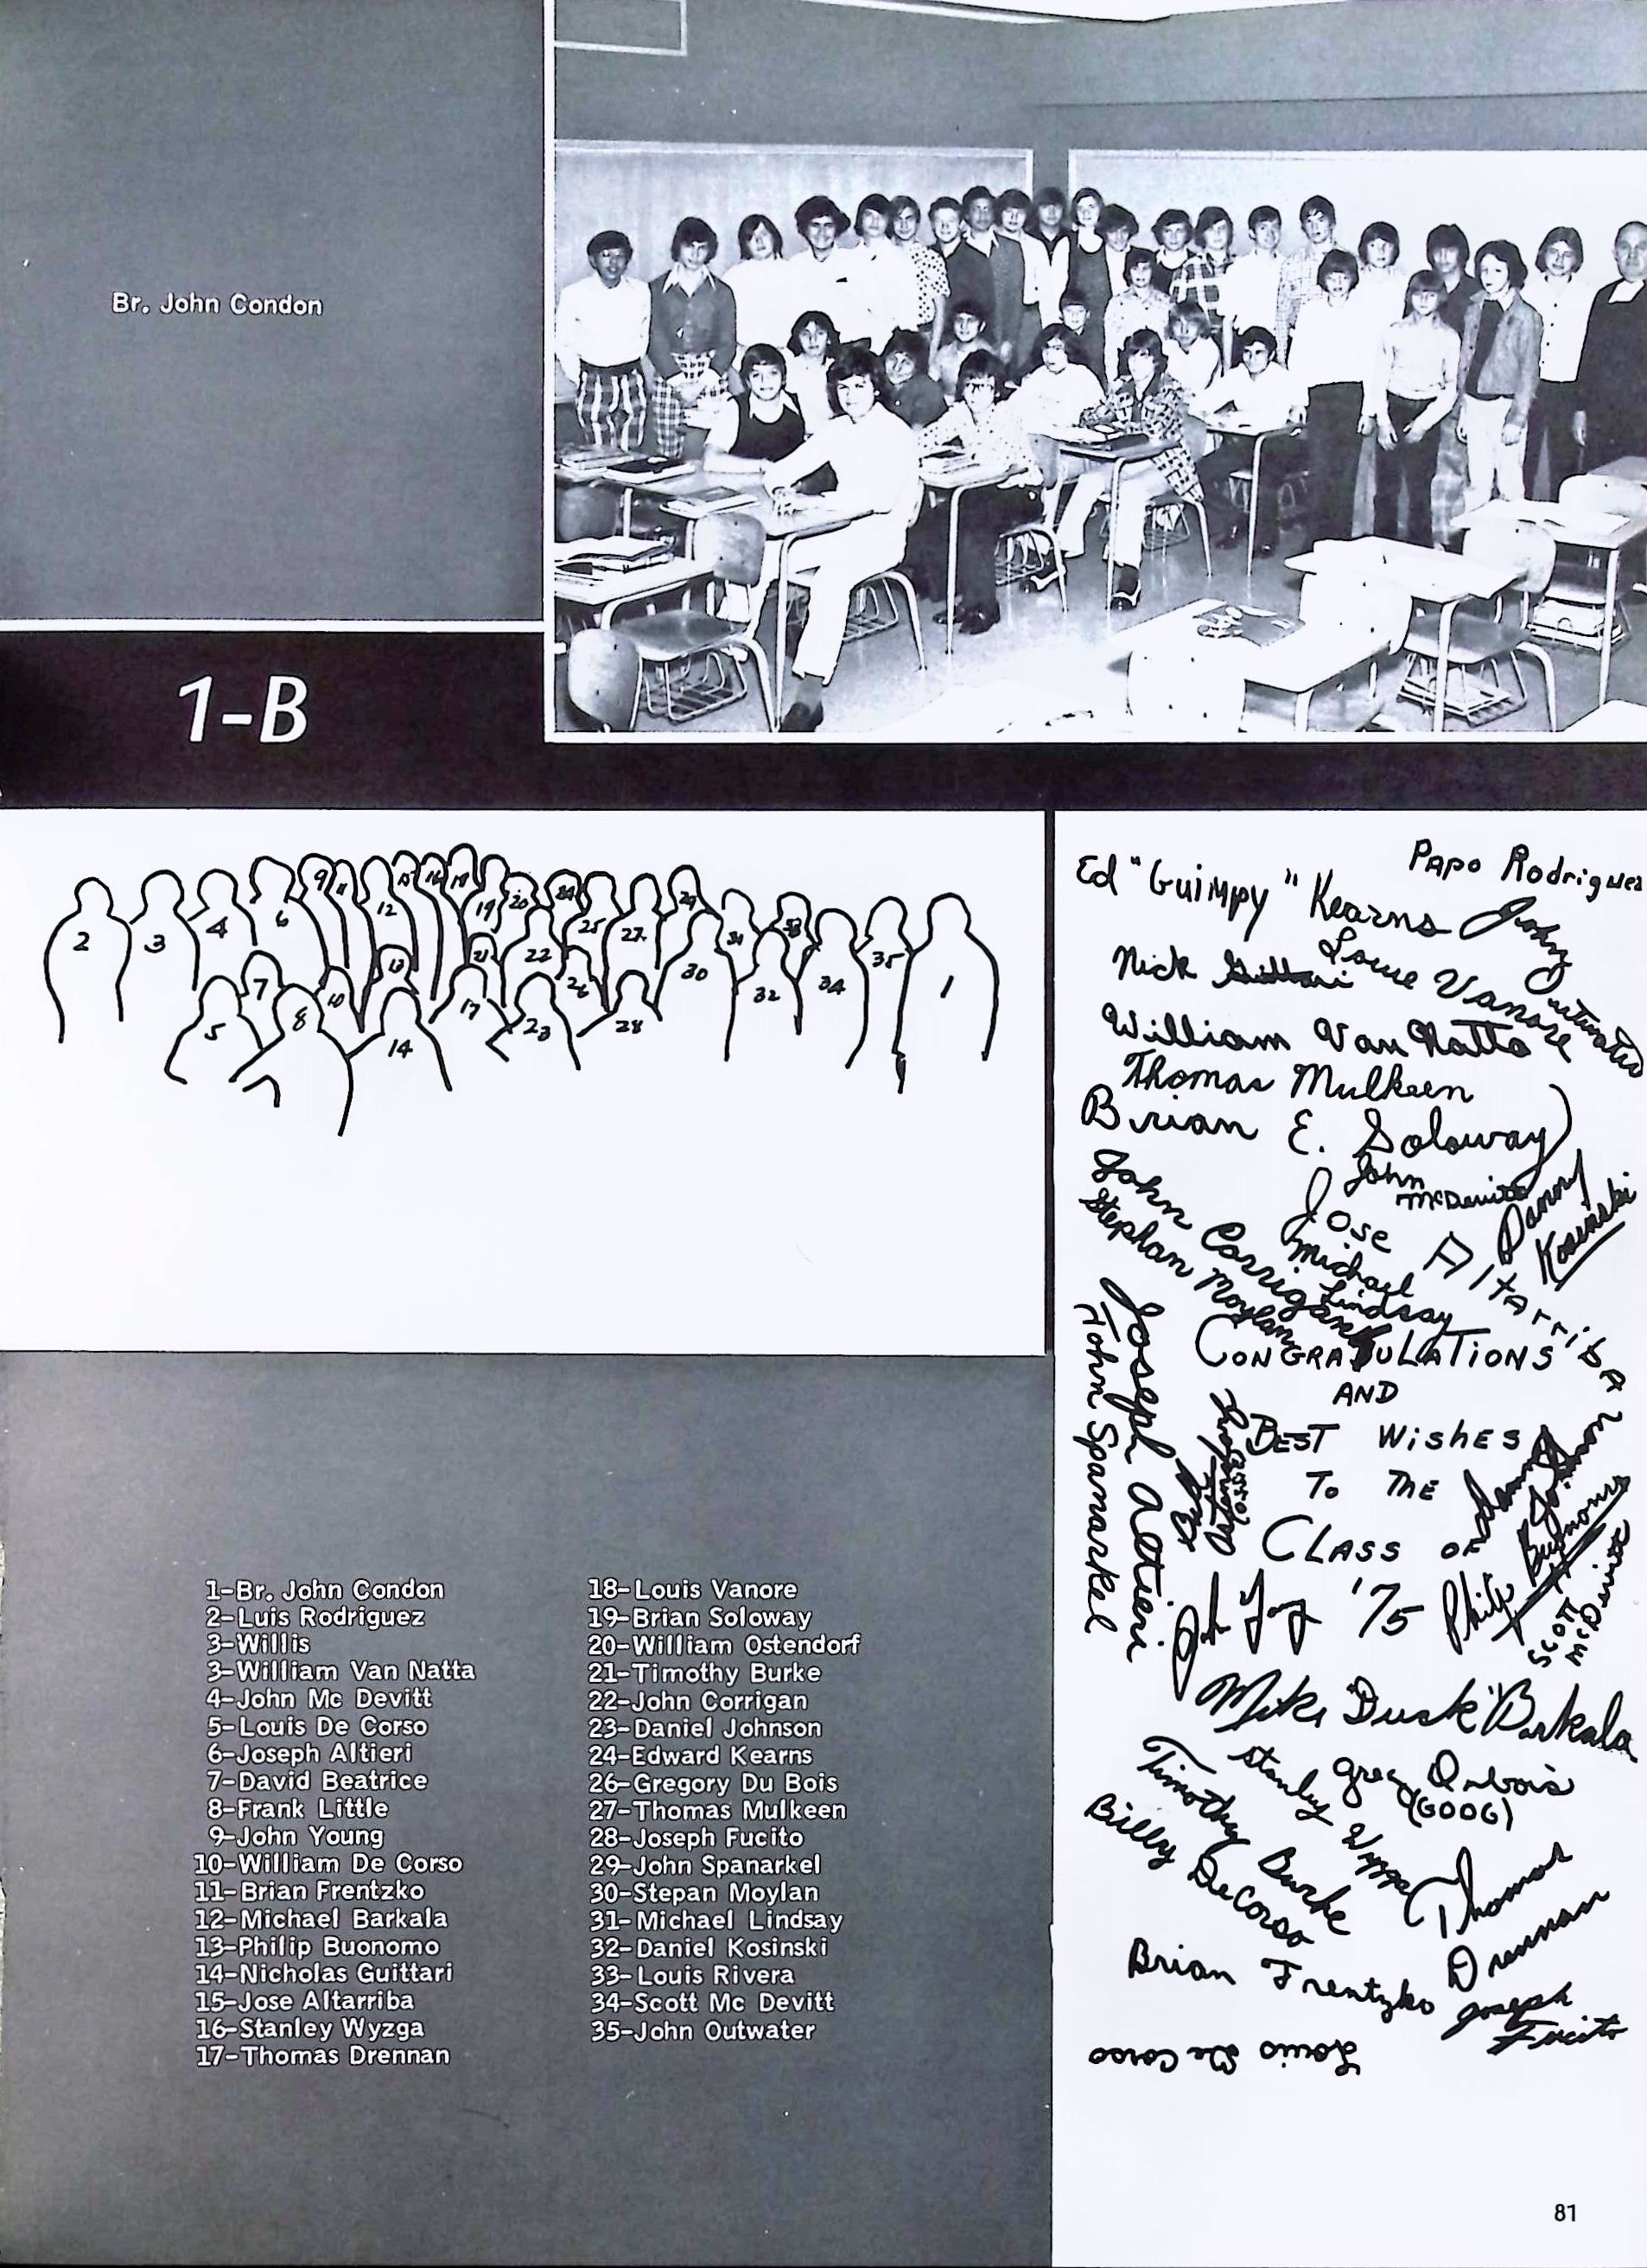 Br. John Condon
1-B
2
3
4
6
9
11
12
15
16
18
19
20
24
25
27
29
31
33
35
1
7
13
21
22
26
30
32
34
5
8
10
14
17
23
28
Papo Rodriguez
Ed "Guimpy" Kearns
John Outwater
Nick Guittari
Louie Vanore
William Van Natta
Thomas Mulkeen
Brian E. Soloway
John McDevitt
Danny Kosinski
Jose Altarriba
John Corrigan
Michael Lindsay
Stephan Moylan
Joseph Altieri
John Spanarkel
CONGRATULATIONS
AND
BEST WisHES
To THE
CLASS OF
'75
Danny Johnson
Philip Buonomo
Scott McDevitt
Mike "Busk" Barkala
Greg Dubois
(GOOG)
Stanley Wyzga
Timothy Burke
Billy DeCorso
Thomas Drennan
Brian Frentzko
Joseph Fucito
Louis De Corso
1-Br. John Condon
2-Luis Rodriguez
3-Willis
3-William Van Natta
4-John Mc Devitt
5-Louis De Corso
6-Joseph Altieri
7-David Beatrice
8-Frank Little
9-John Young
10-William De Corso
11-Brian Frentzko
12-Michael Barkala
13-Philip Buonomo
14-Nicholas Guittari
15-Jose Altarriba
16-Stanley Wyzga
17-Thomas Drennan
18-Louis Vanore
19-Brian Soloway
20-William Ostendorf
21-Timothy Burke
22-John Corrigan
23-Daniel Johnson
24-Edward Kearns
26-Gregory Du Bois
27-Thomas Mulkeen
28-Joseph Fucito
29-John Spanarkel
30-Stepan Moylan
31-Michael Lindsay
32-Daniel Kosinski
33-Louis Rivera
34-Scott Mc Devitt
35-John Outwater
81